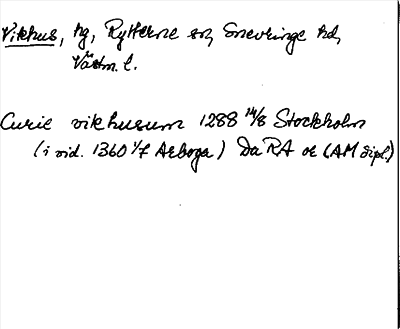 Vikhus, hg, Rytterne sn, Snevringe hd,
Västm. l.
Curie vikhusum 1288 14/8 Stockholm
(i vid. 1360 1/7 Arboga) Da RA or (AM dipl.)